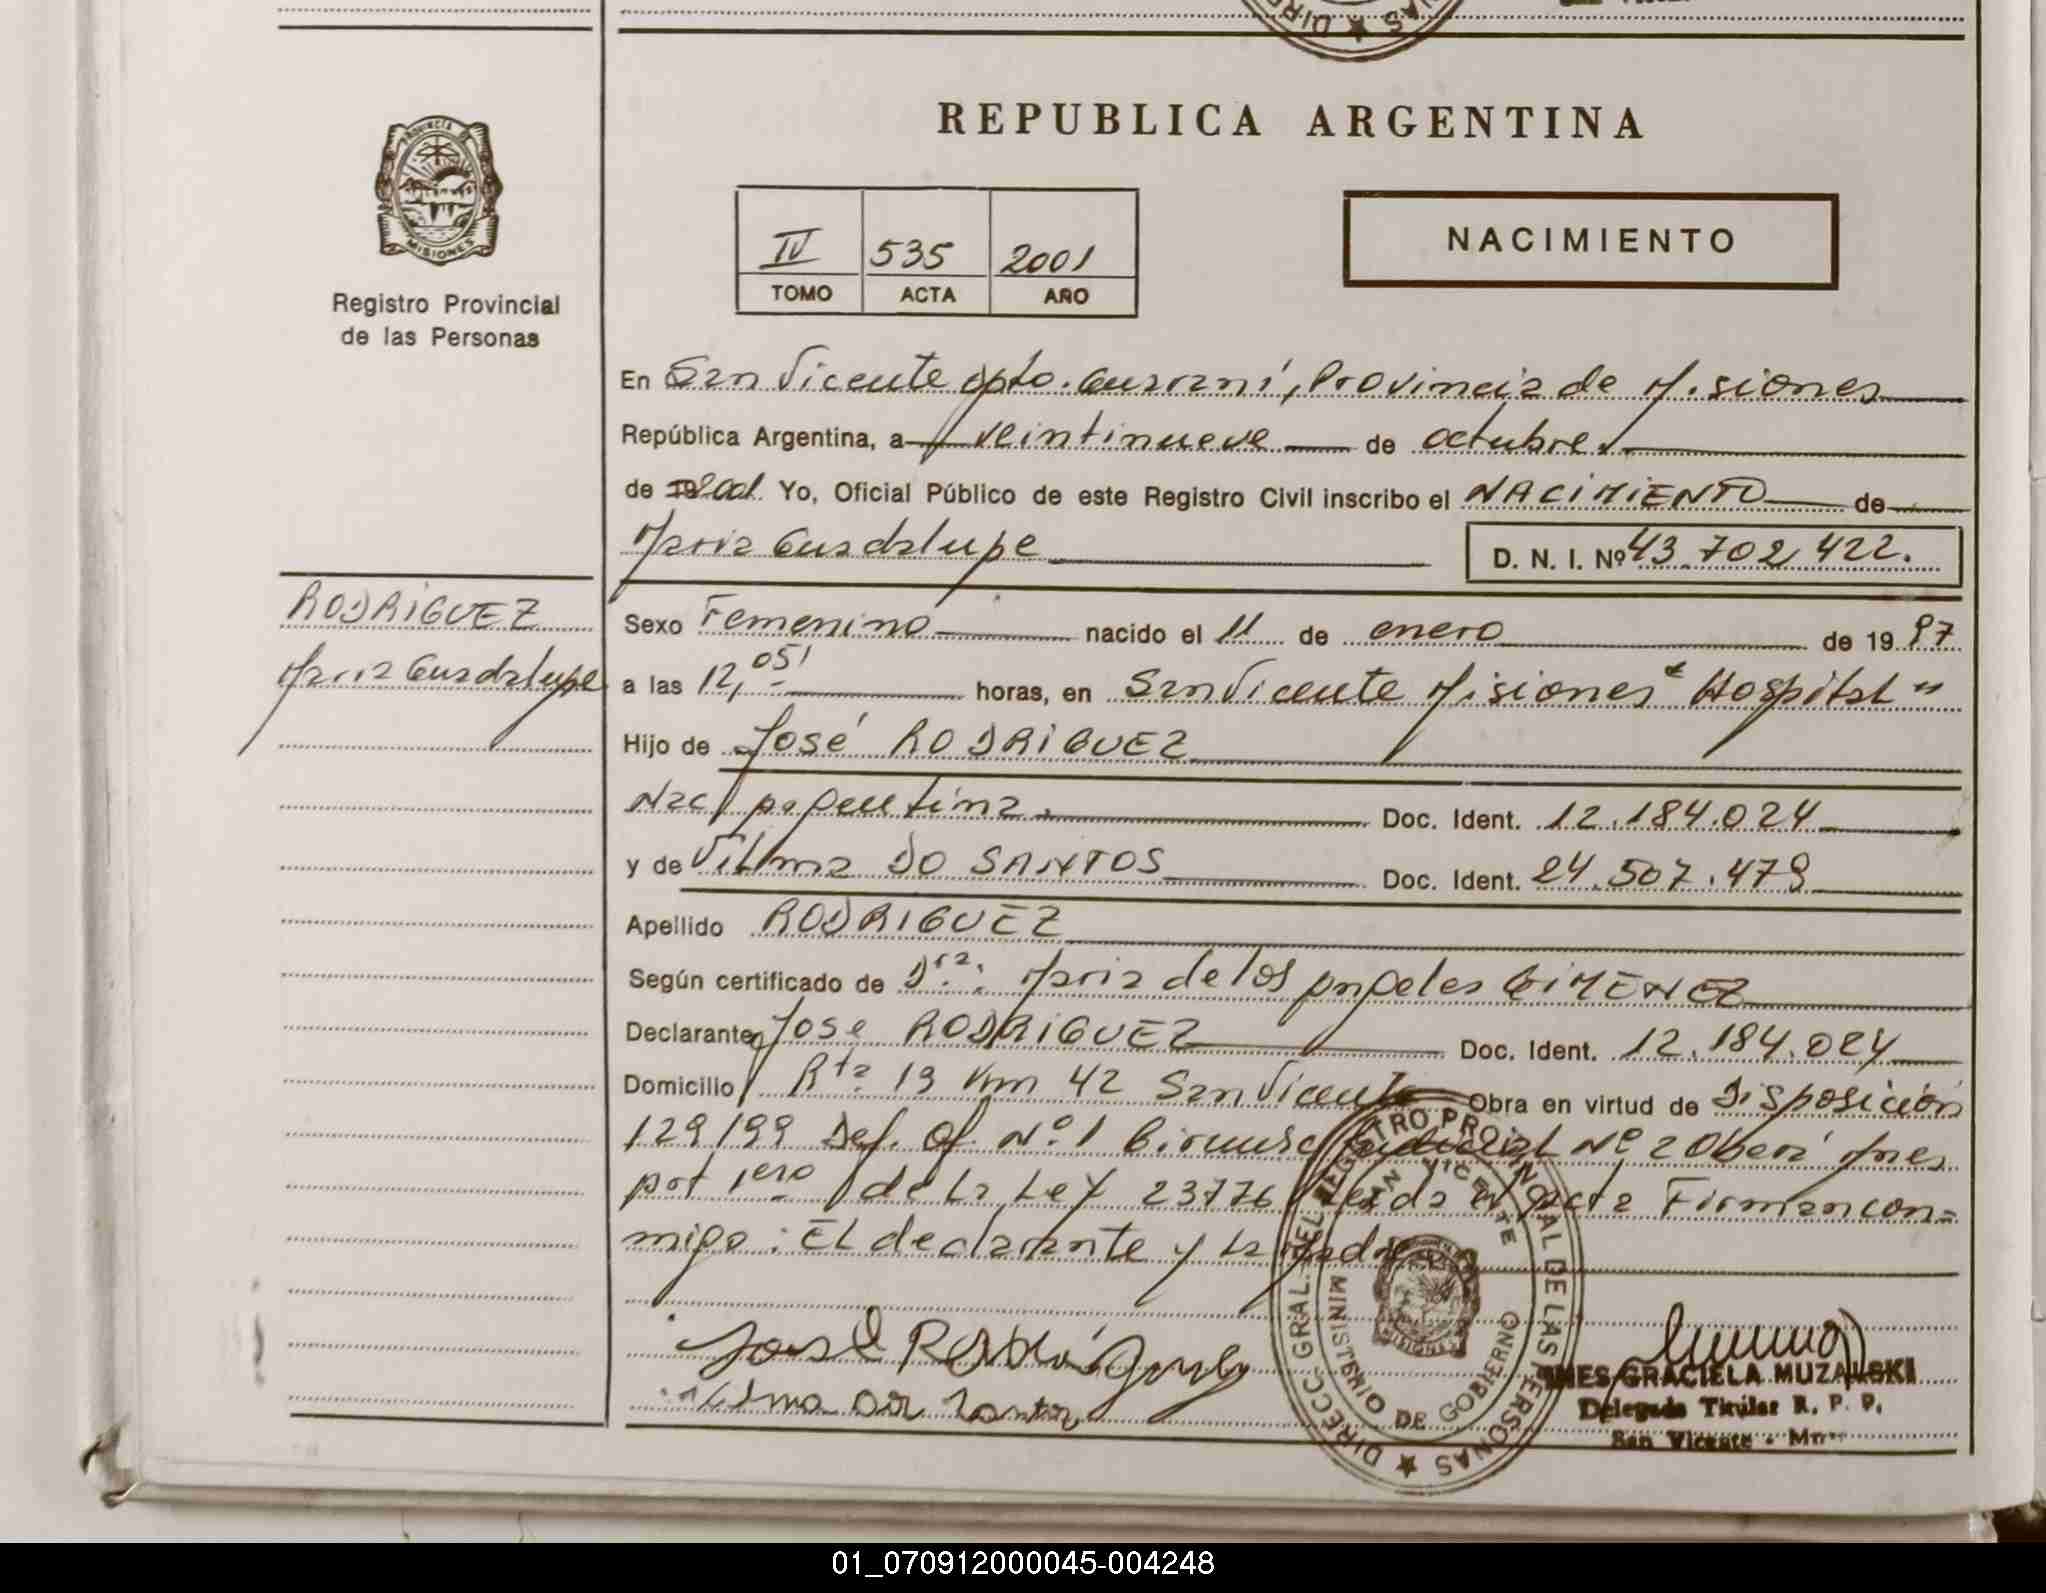 REPUBLICA ARGENTINA
PROVINCIA DE
MISIONES
Registro Provincial
de las Personas
IV 535 2001
TOMO ACTA AÑO
NACIMIENTO
En San Vicente Dpto. Guaraní, Provincia de Misiones
República Argentina, a veintinueve de octubre
de 19 2001. Yo, Oficial Público de este Registro Civil inscribo el NACIMIENTO de
Maria Guadalupe
D. N. I. Nº 43.702.422.
RODRIGUEZ
Maria Guadalupe
Sexo Femenino nacido el 11 de enero de 19 97
a las 12,05' horas, en San Vicente Misiones "Hospital"
Hijo de José RODRIGUEZ
Nac. Argentina. Doc. Ident. 12.184.024
y de Vilma DO SANTOS Doc. Ident. 24.507.479
Apellido RODRIGUEZ
Según certificado de Dra. Maria de los Angeles GIMENEZ
Declarante Jose RODRIGUEZ Doc. Ident. 12.184.024
Domicilio Rta 13 Km 42 San Vicente Obra en virtud de Disposición
129/99 Def. Of. Nº 1 Circunsc Judicial Nº 2 Oberá Mnes
Art 1ero de la Ley 23776 Leida el Acta Firman con=
migo: El declarante y la Madre
José Rodríguez
Vilma do Santos
DIRECC. GRAL. DEL REGISTRO PROVINCIAL DE LAS PERSONAS
SAN VICENTE
MINISTERIO DE GOBIERNO
INES GRACIELA MUZALSKI
Delegada Titular R. P. P.
San Vicente - Mnes
01_070912000045-004248